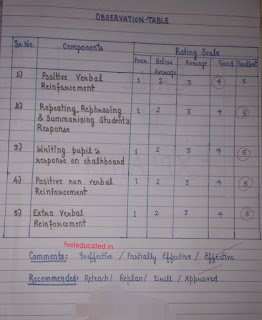 OBSERVATION-TABLE
Sr.No. Components Rating Scale
Poor Below Average Average Good Excellent
1) Positive Verbal Reinforcement 1 2 3 4 5
2) Repeating, Rephrasing & Summarising Student's Response 1 2 3 4 5
3) Writing pupil's response on chalkboard 1 2 3 4 5
4) Positive non verbal Reinforcement 1 2 3 4 5
5) Extra Verbal Reinforcement 1 2 3 4 5
feeleducated.in
Comments: Ineffective / Partially Effective / Effective
Recommended: Reteach/ Replan/ Drill / Approved